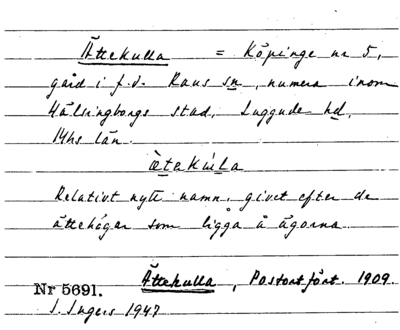 Ättekulla = Köpinge nr 5,
gård i f.d. Raus sn, numera inom
Hälsingborgs stad, Luggude hd,
Mhs län.
Relativt nytt namn, givet efter de
ättehögar som ligga å ägorna.
Ättekulla, Postort fört. 1909.
Nr 5691.
I. Ingers 1947